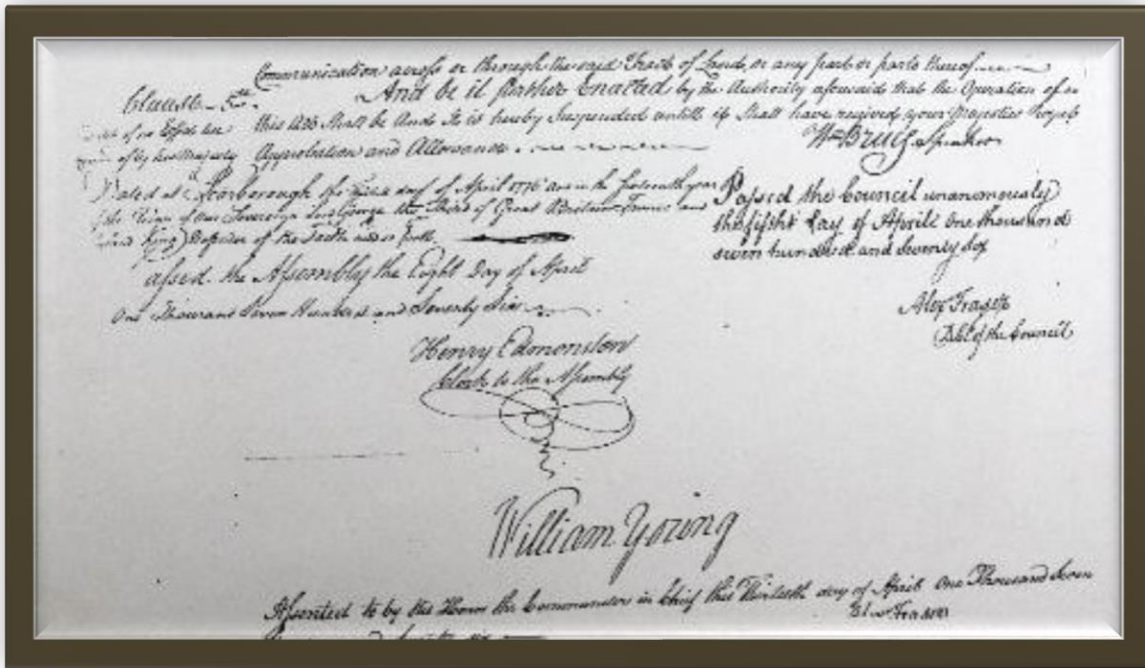 Communication across or through the said Tract of Lands, or any part or parts thereof
Clause 5th.
And be it further Enacted by the Authority aforesaid that the Operation of
this Act Shall be And it is hereby Suspended untill it Shall have received your Majesties Royal
of by his Majesty
Approbation and Allowance.
Wm Bruce Speaker
Dated at Scarborough the day of April 1776 and in the Sixteenth year
of Our Sovereign Lord George the Third of Great Britain France and
King Defender of the Faith and so forth
assed the Assembly the Eight Day of April
One Thousand Seven Hundred and Seventy Six
Passed the Council unanimously
the fifht Day of Aprill One thousand
seven hundred and seventy six
Alex Fraser
of the Council
Henry Edmonston
Clerk to the Assembly
William Young
Assented to by the Honr the Commander in Chief this day of April One Thousand Seven
Fraser